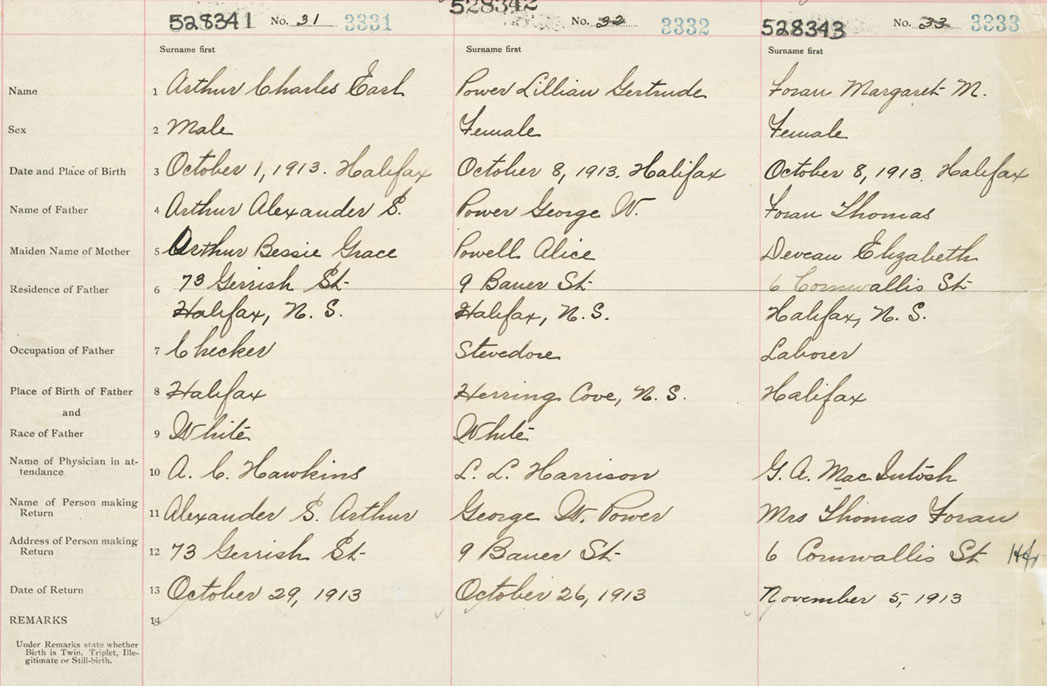 528341 No. 31 3331 528342 No. 32 3332 528343 No. 33 3333
Surname first Surname first Surname first
Name 1 Arthur Charles Earl Power Lillian Gertrude Foran Margaret M.
Sex 2 Male Female Female
Date and Place of Birth 3 October 1, 1913. Halifax October 8, 1913. Halifax October 8, 1913. Halifax
Name of Father 4 Arthur Alexander S. Power George W. Foran Thomas
Maiden Name of Mother 5 Arthur Bessie Grace Powell Alice Deveau Elizabeth
Residence of Father 6 73 Gerrish St. 9 Bauer St. 6 Cornwallis St.
Halifax, N. S. Halifax, N. S. Halifax, N. S.
Occupation of Father 7 Checker Stevedore Laborer
Place of Birth of Father 8 Halifax Herring Cove, N. S. Halifax
and
Race of Father 9 White White
Name of Physician in at-
tendance 10 A. C. Hawkins L. L. Harrison G. A. MacIntosh
Name of Person making
Return 11 Alexander S. Arthur George W. Power Mrs Thomas Foran
Address of Person making
Return 12 73 Gerrish St. 9 Bauer St. 6 Cornwallis St Hfx
Date of Return 13 October 29, 1913 October 26, 1913 November 5, 1913
REMARKS 14
Under Remarks state whether
Birth is Twin, Triplet, Ille-
gitimate or Still-birth.